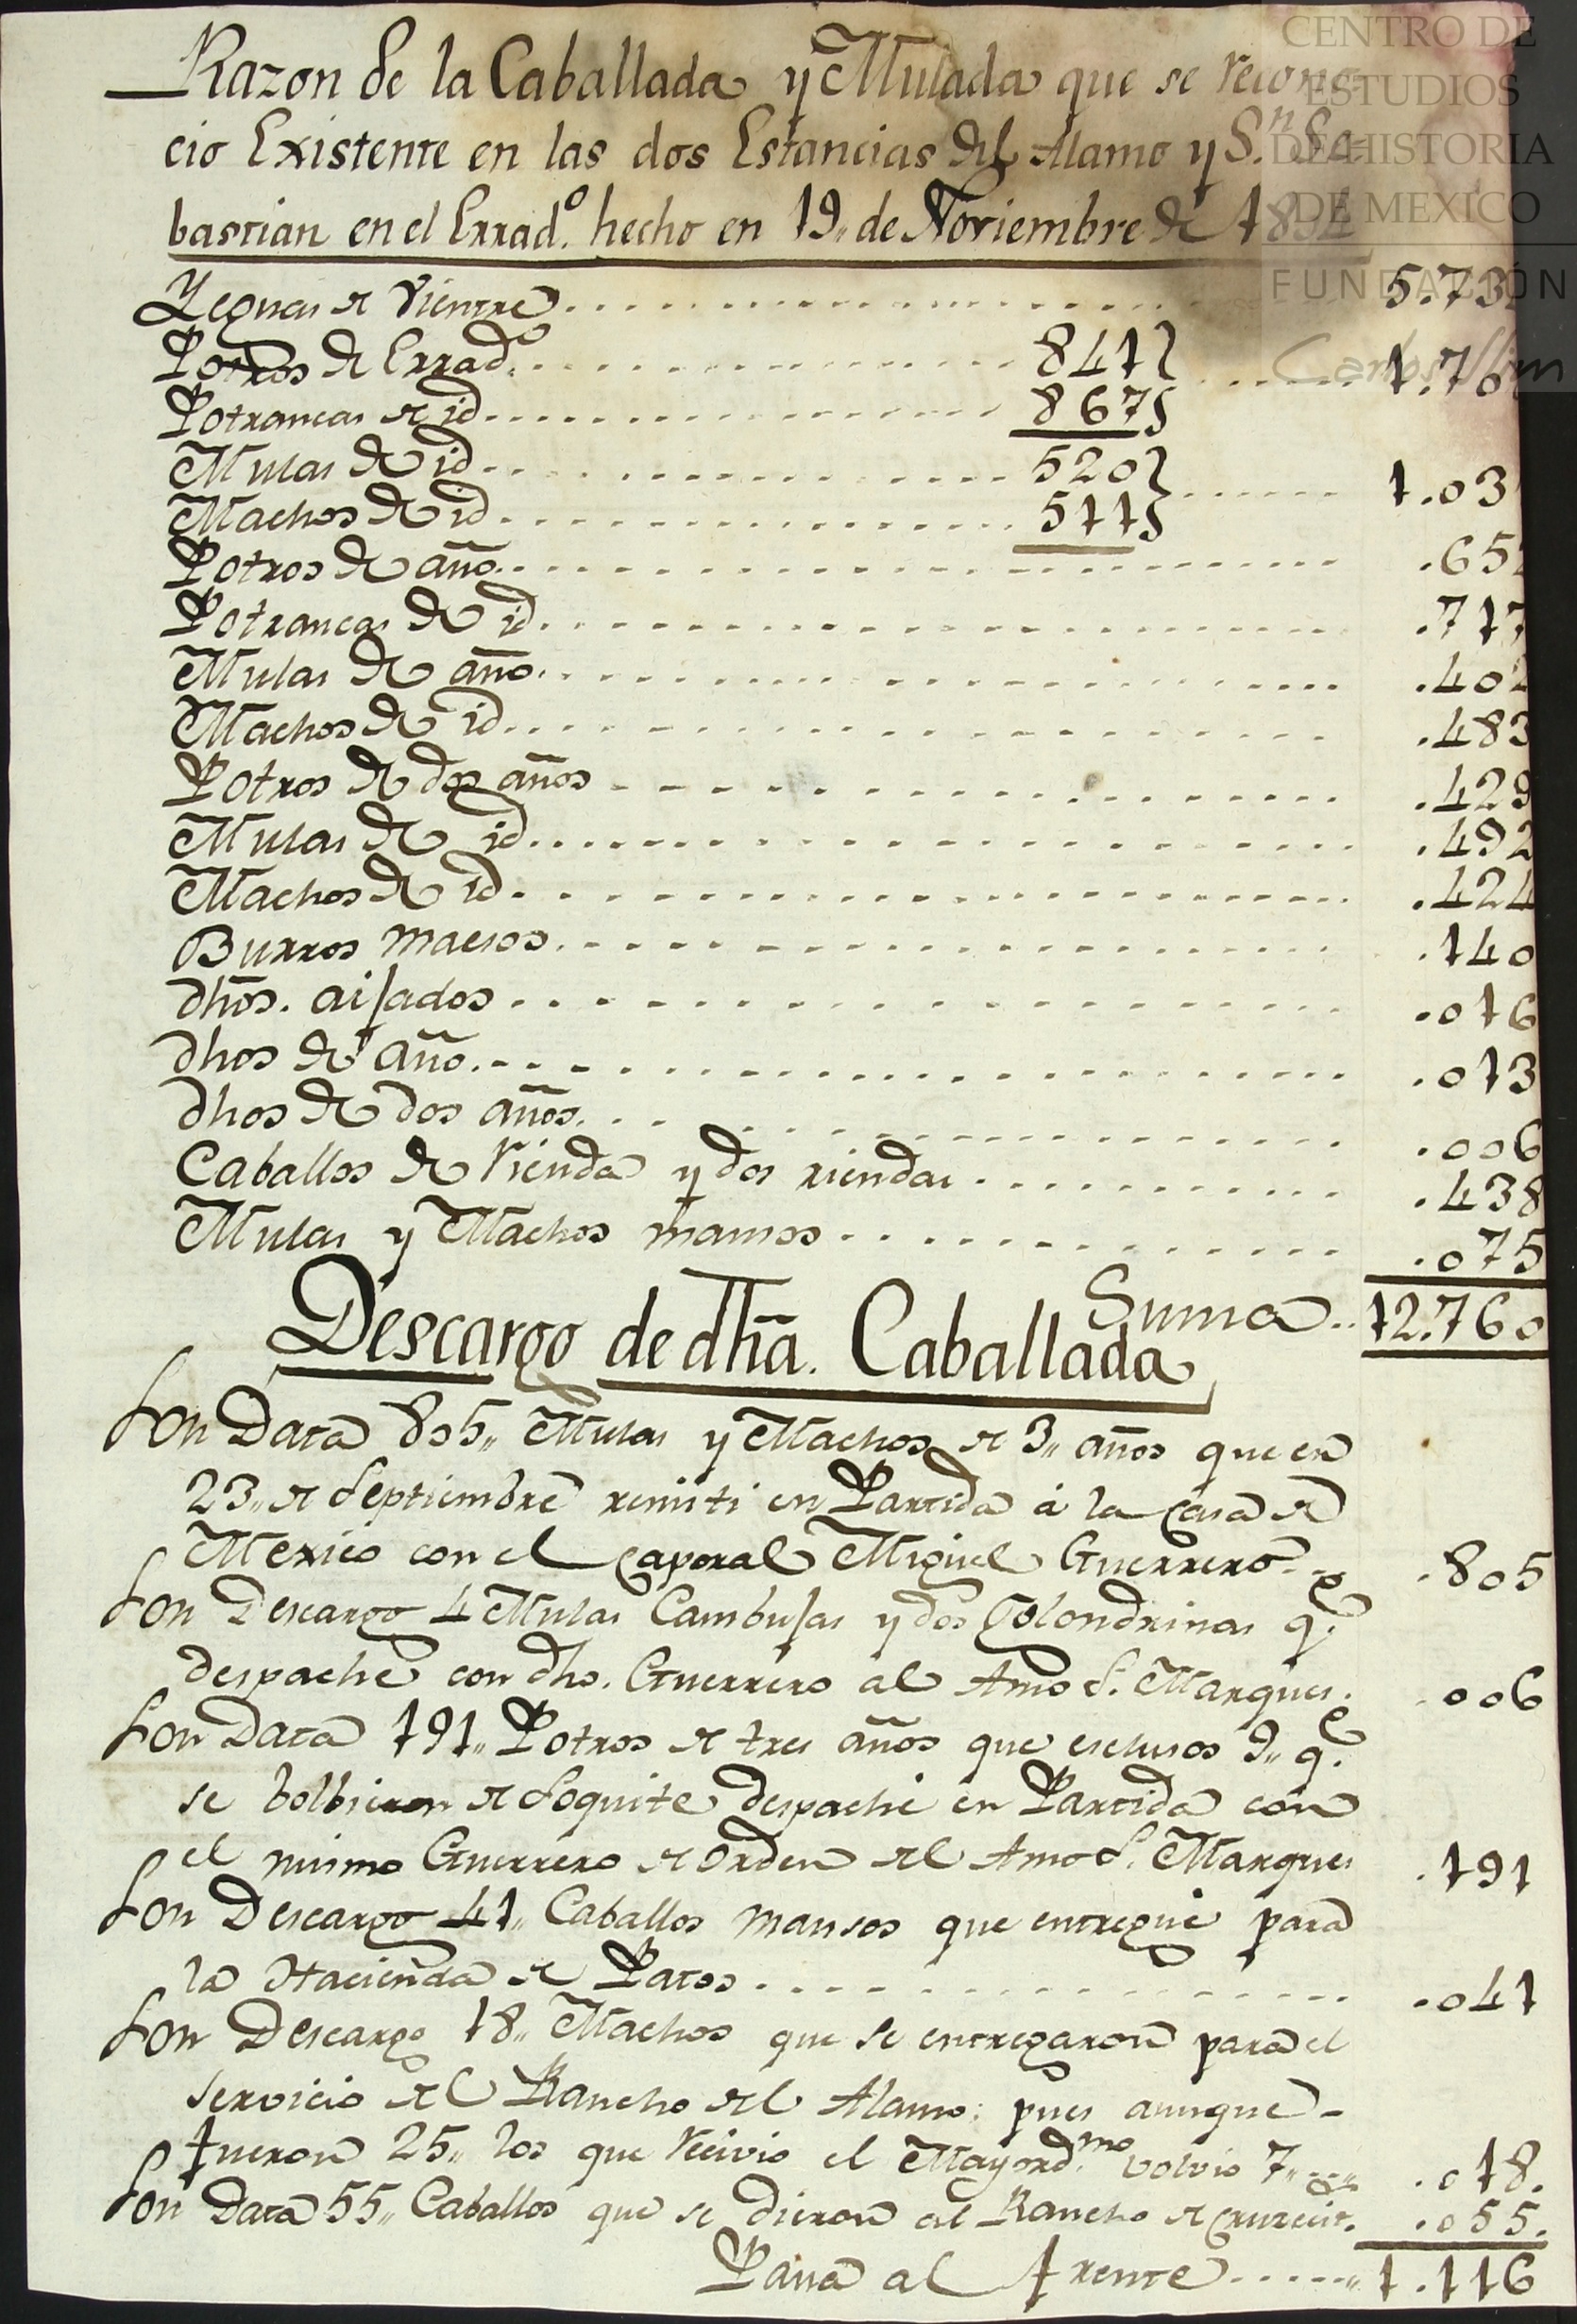 Razon de la Caballada y Mulada que se recono-
cio Existente en las dos Estancias del Alamo y S.n Se-
bastian en el Errad.o hecho en 19,, de Noviembre de
Yeguas de Vientre 5.73
Potros de Errad.o 841
Potrancas de id 867 1.70
Mulas de id 520
Machos de id 511 1.03
Potros de año .65
Potrancas de id .717
Mulas de año .402
Machos de id .483
Potros de dos años .429
Mulas de id .492
Machos de id .424
Burros maesos .140
dhos. aisados .016
dhos de año .013
dhos de dos años .006
Caballos de Rienda y dos riendas .438
Mulas y Machos mansos .075
Suma 12.760
Descargo de dha. Caballada
Son Data 805,, Mulas y Machos de 3,, años que en
23,, de Septiembre remiti en Partida á la Casa de
Mexico con el Caporal Miguel Guerrero .805
Son Descargo 4 Mulas Cambujas y dos Golondrinas q.e
despaché con dho. Guerrero al Amo S. Marques. .006
Son Data 191,, Potros de tres años que esclusos 9,, q.e
se bolbieron de Soquite despaché en Partida con
el mismo Guerrero de orden del Amo S. Marques .191
Son Descargo 41,, Caballos mansos que entregué para
la Hacienda de Patos .041
Son Descargo 18,, Machos que se entregaron para el
servicio del Rancho del Alamo; pues aunque-
fueron 25,, los que recivio el Mayord.mo volvio 7,, .018.
Son Data 55,, Caballos que se dieron al Rancho de .055.
Pasa al frente 1.116
CENTRO DE
ESTUDIOS
DE HISTORIA
DE MEXICO
FUNDACIÓN
Carlos Slim